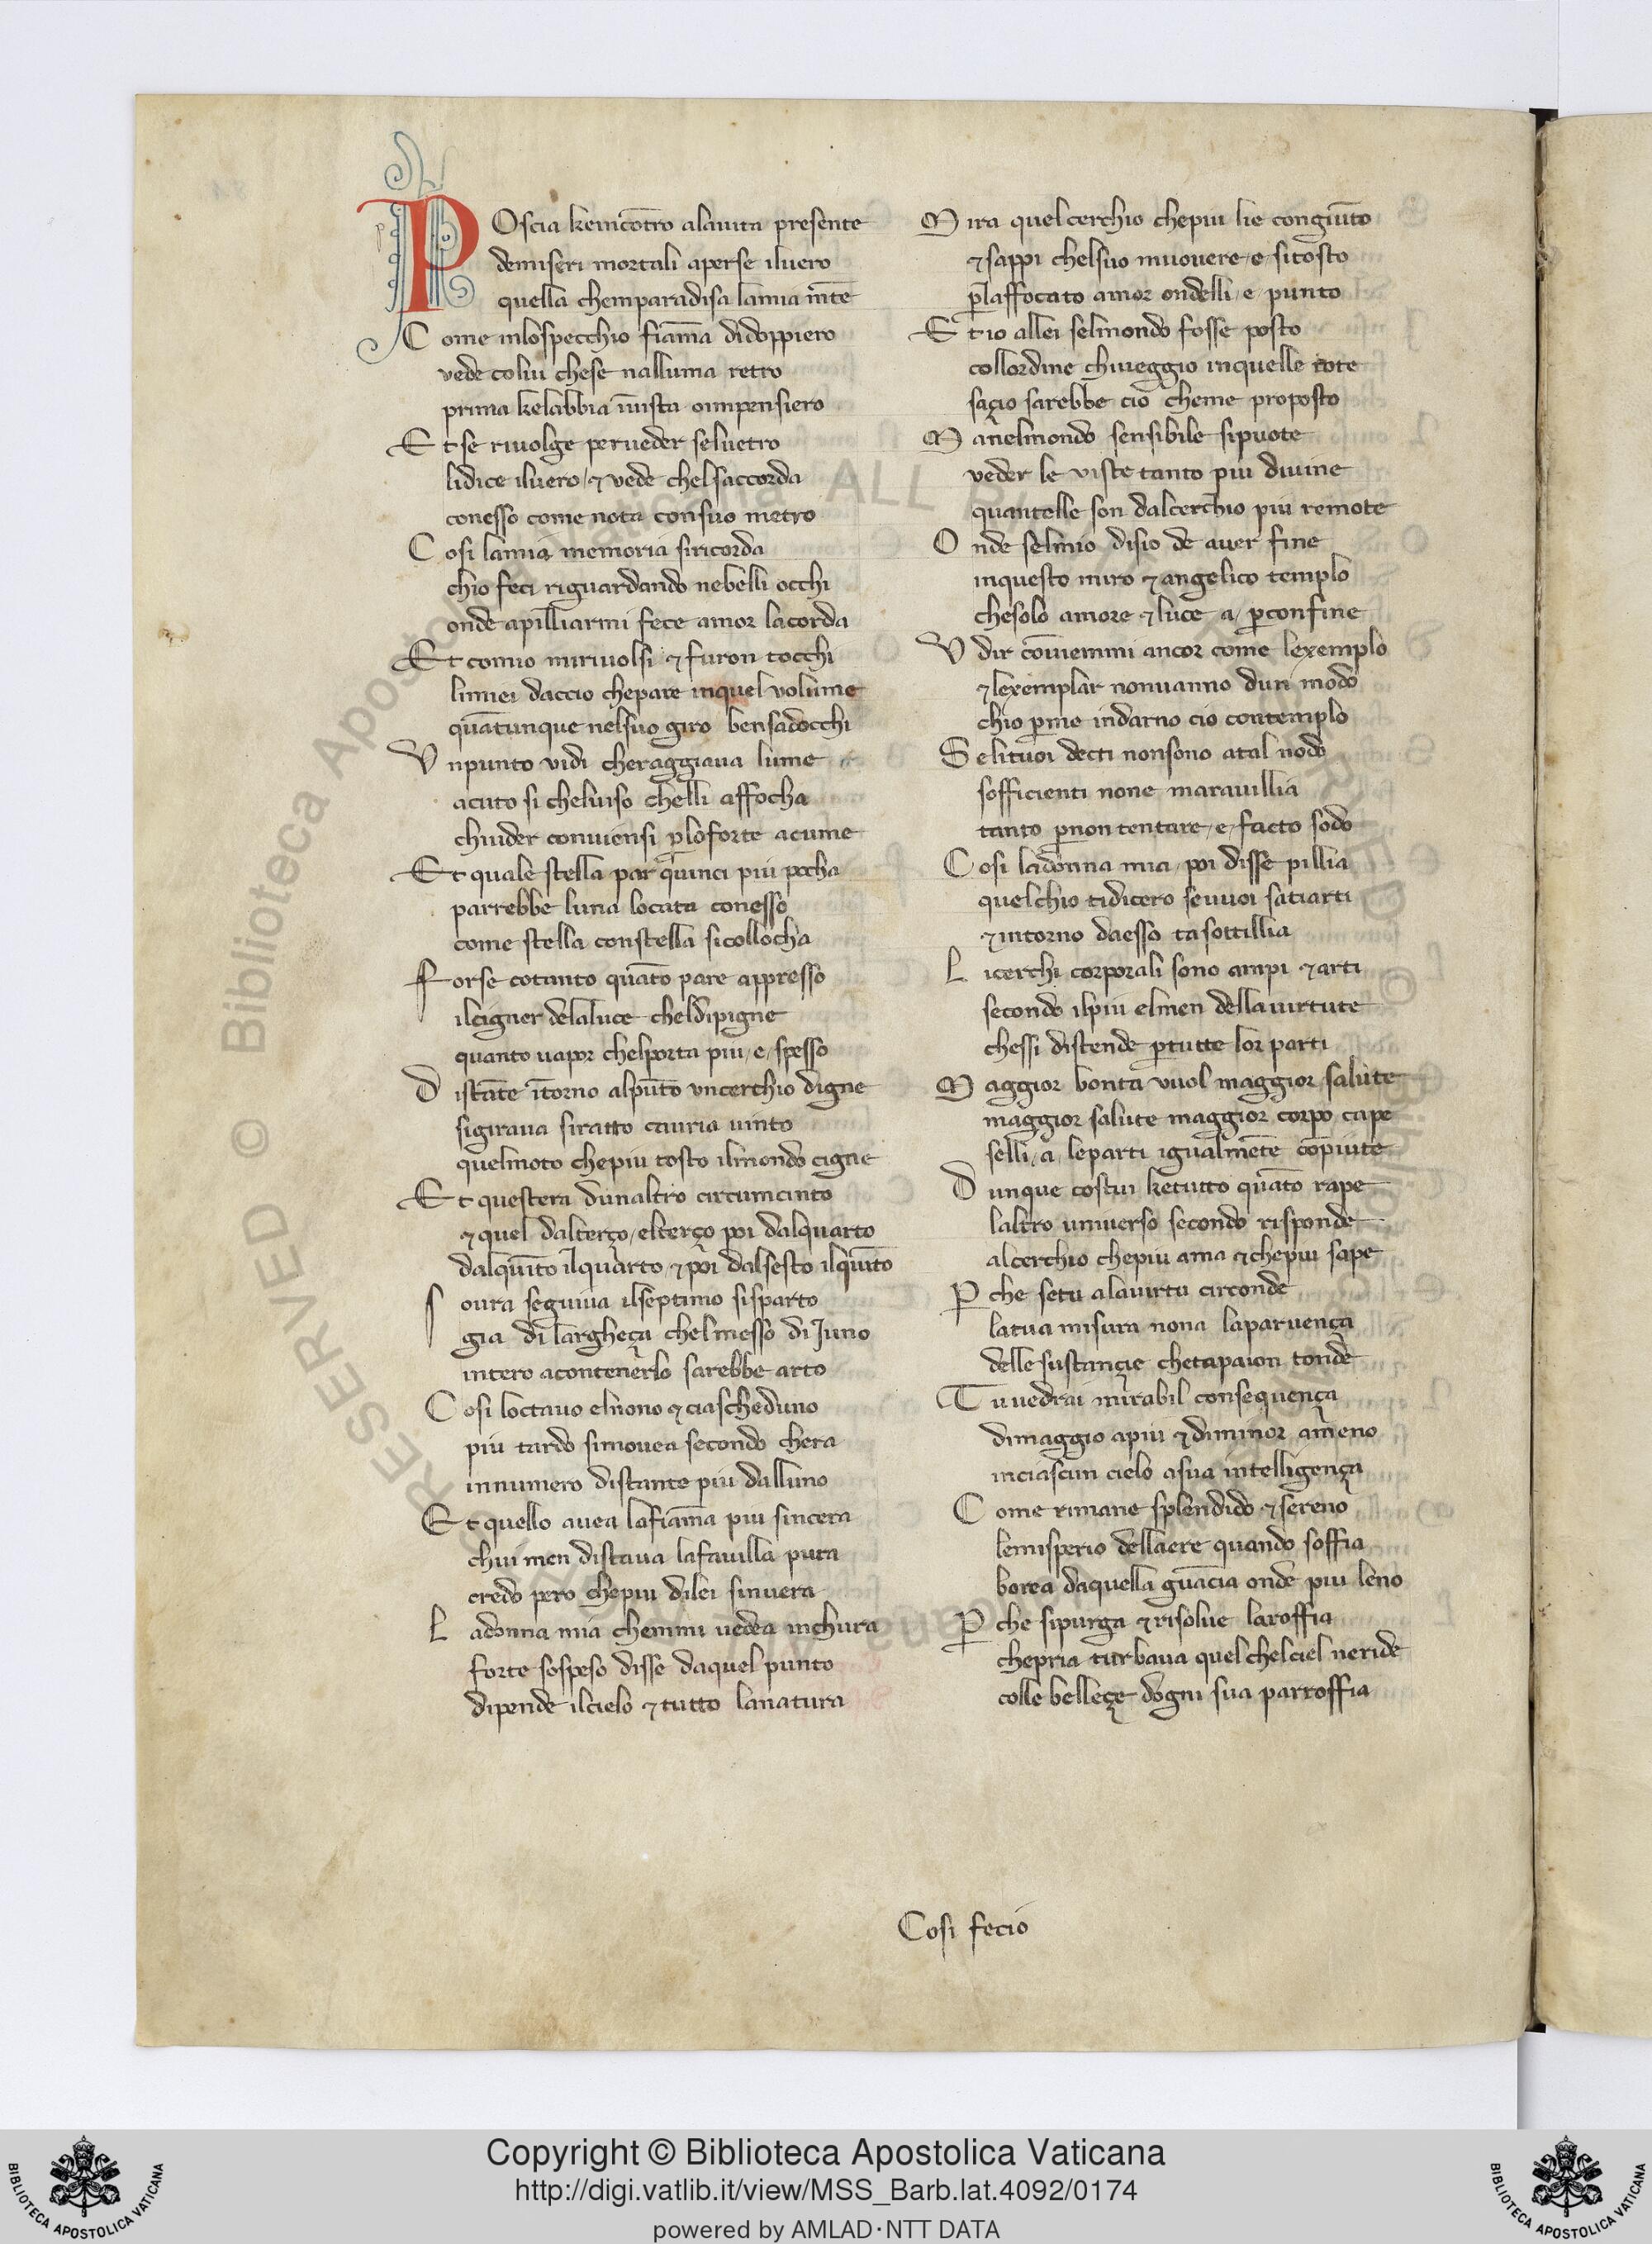 POscia kemcōtro alauita presente
demiseri mortali aperse iluero
quella chemparadisa lamia m̄te
Come inlospecchio fiam̄a didoppiero
uede colui chese nalluma retro
prima kelabbia īuista oimpensiero
Et se riuolge perueder seluetro
lidice iluero ⁊ uede chelsaccorda
conesso come nota consuo metro
Cosi lamia memoria siricorda
chio feci riguardando nebelli occhi
onde apilliarmi fece amor lacorda
Et comio miriuolsi ⁊ furon tocchi
limiei daccio chepare inquel uolume
quātunque nelsuo giro bensadocchi
Vnpunto uidi cheraggiaua lume
acuto si cheluiso chelli affocha
chiuder conuiensi ꝑloforte acume
Et quale stella par quinci piu pocha
parrebbe luna locata conesso
come stella constella sicollocha
Forse cotanto quāto pare appresso
ilcigner delaluce cheldipigne
quanto uapor chelporta piu e spesso
Distāte ītorno alpūto vncerchio digne
sigiraua siratto cauria uinto
quelmoto chepiu tosto ilmondo cigne
Et questera dunaltro circumcinto
⁊ quel dalterço elterço poi dalquarto
dalquīto ilquarto ⁊ poi dalsesto ilquīto
Soura seguiua ilseptimo sisparto
gia di largheça chelmesso di Juno
intero acontenerlo sarebbe arto
Cosi loctauo elnono ⁊ ciascheduno
piu tardo simouea secondo chera
innumero distante piu dalluno
Et quello auea lafiam̄a piu sincera
chui men distaua lafauilla pura
credo pero chepiu dilei sinuera
Ladonna mia chemmi uedea inchura
forte sospeso disse daquel punto
dipende ilcielo ⁊ tutto lanatura
Mira quel cerchio chepiu lie congiūto
⁊ sappi chelsuo muouere e sitosto
ꝑlaffocato amor ondelli e punto
Et io allei selmondo fosse posto
collordine chiueggio inquelle rote
saçio sarebbe cio cheme proposto
Manelmondo sensibile sipuote
ueder le uiste tanto piu diuine
quantelle son dalcerchio piu remote
Onde selmio disio de auer fine
inquesto miro ⁊ angelico templo
chesolo amore ⁊ luce a ꝑconfine
Vdir cōuiemmi ancor come lexemplo
⁊ lexemplar nonuanno dun modo
chio ꝑme indarno cio contemplo
Selituoi decti nonsono atal nodo
sofficienti none marauillia
tanto ꝑnon tentare e facto sodo
Cosi ladonna mia poi disse pillia
quelchio tidicero seuuoi satiarti
⁊ intorno daesso tasottillia
Licerchi corporali sono ampi ⁊ arti
secondo ilpiu elmen dellauirtute
chessi distende ꝑtutte lor parti
Maggior bonta vuol maggior salute
maggior salute maggior corpo cape
selli a leparti igualmēte cōpiute
Dunque costui ketutto quāto rape
laltro uniuerso secondo risponde
alcerchio chepiu ama ⁊ chepiu sape
Ꝑche setu alauirtu circonde
latua misura nona laparuença
delle sustançie chetapaion tonde
Tuuedrai mirabil consequença
dimaggio apiu ⁊ diminor ameno
inciascun cielo asua intelligença
Come rimane splendido ⁊ sereno
lemisperio dellaere quando soffia
borea daquella guācia onde piu leno
Ꝑche sipurga ⁊ risolue laroffia
chepria turbaua quel chelciel neride
colle belleçe dogni sua parroffia
Cosi fecio
© Biblioteca Apostolica Vaticana ALL RIGHTS RESERVED
Copyright © Biblioteca Apostolica Vaticana
http://digi.vatlib.it/view/MSS_Barb.lat.4092/0174
powered by AMLAD·NTT DATA
BIBLIOTECA APOSTOLICA VATICANA
BIBLIOTECA APOSTOLICA VATICANA